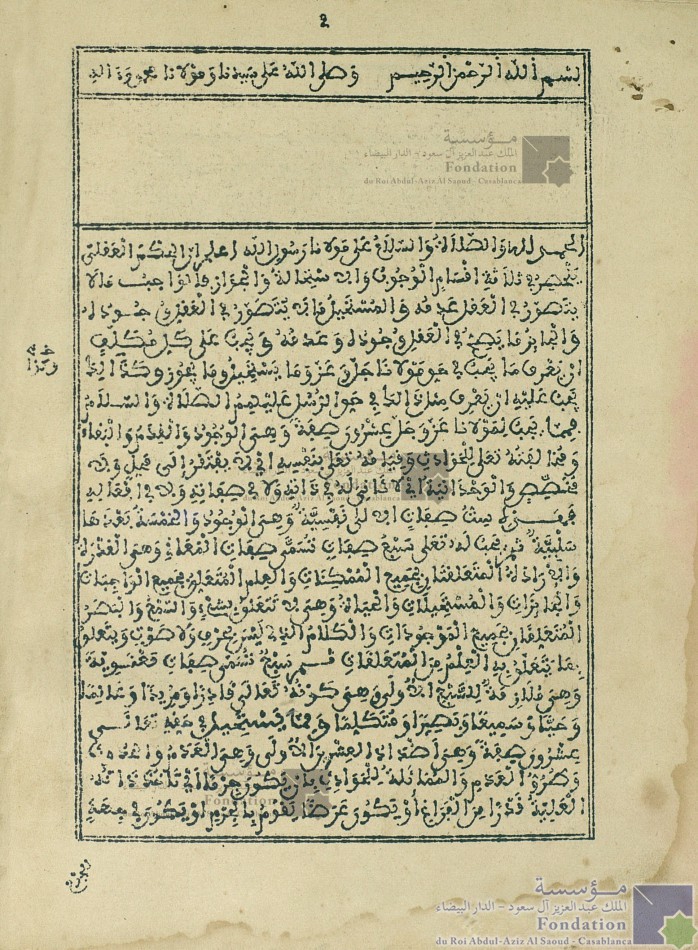 2
بسم الله الرحمن الرحيم وصلى الله على سيدنا ومولانا محمد وءاله
مؤسسة
الملك عبد العزيز آل سعود - الدار البيضاء
Fondation
du Roi Abdul-Aziz Al Saoud - Casablanca
الحمد لله والصلاة والسلام على مولانا رسول الله اعلم ان الحكم العقلي
ينحصر في ثلاثة اقسام الوجوب والاستحالة والجواز فالواجب مالا
يتصور في العقل عدمه والمستحيل مالا يتصور في العقل وجوده
والجائز ما يصح في العقل وجوده وعدمه ويجب على كل مكلف
ان يعرف ما يجب في حق مولانا جل وعز وما يستحيل وما يجوز وكذا
يجب عليه ان يعرف مثل ذلك في حق الرسل عليهم الصلاة والسلام
فمما يجب لمولانا عز وجل عشرون صفة وهي الوجود والقدم والبقاء
ومخالفته تعلى للحوادث وقيامه تعلى بنفسه اي لا يفتقر الى محل ولا
مخصص والوحدانية اي لا ثاني له في ذاته ولا في صفاته ولا في افعاله
فهذه ست صفات الاولى نفسية وهي الوجود والخمسة بعدها
سلبية ثم يجب له تعلى سبع صفات تسمى صفات المعاني وهي القدرة
والارادة المتعلقتان بجميع الممكنات والعلم المتعلق بجميع الواجبات
والجائزات والمستحيلات والحياة وهي لا تتعلق بشيء والسمع والبصر
المتعلقان بجميع الموجودات والكلام الذي ليس بحرف ولا صوت ويتعلق
بما يتعلق به العلم من المتعلقات ثم سبع تسمى صفات معنوية
وهي ملازمة للسبع الاولى وهي كونه تعالى قادرا ومريدا وعالما
وحيا وسميعا وبصيرا ومتكلما ومما يستحيل في حقه تعالى
عشرون صفة وهي اضداد العشرين الاولى وهي العدم والحدوث
وطرو العدم والمماثلة للحوادث بان يكون جرما اي تاخذ ذاته
العلية قدرا من الفراغ او يكون عرضا يقوم بالجرم او يكون في جهة
مؤسسة
الملك عبد العزيز آل سعود - الدار البيضاء
Fondation
du Roi Abdul-Aziz Al Saoud - Casablanca